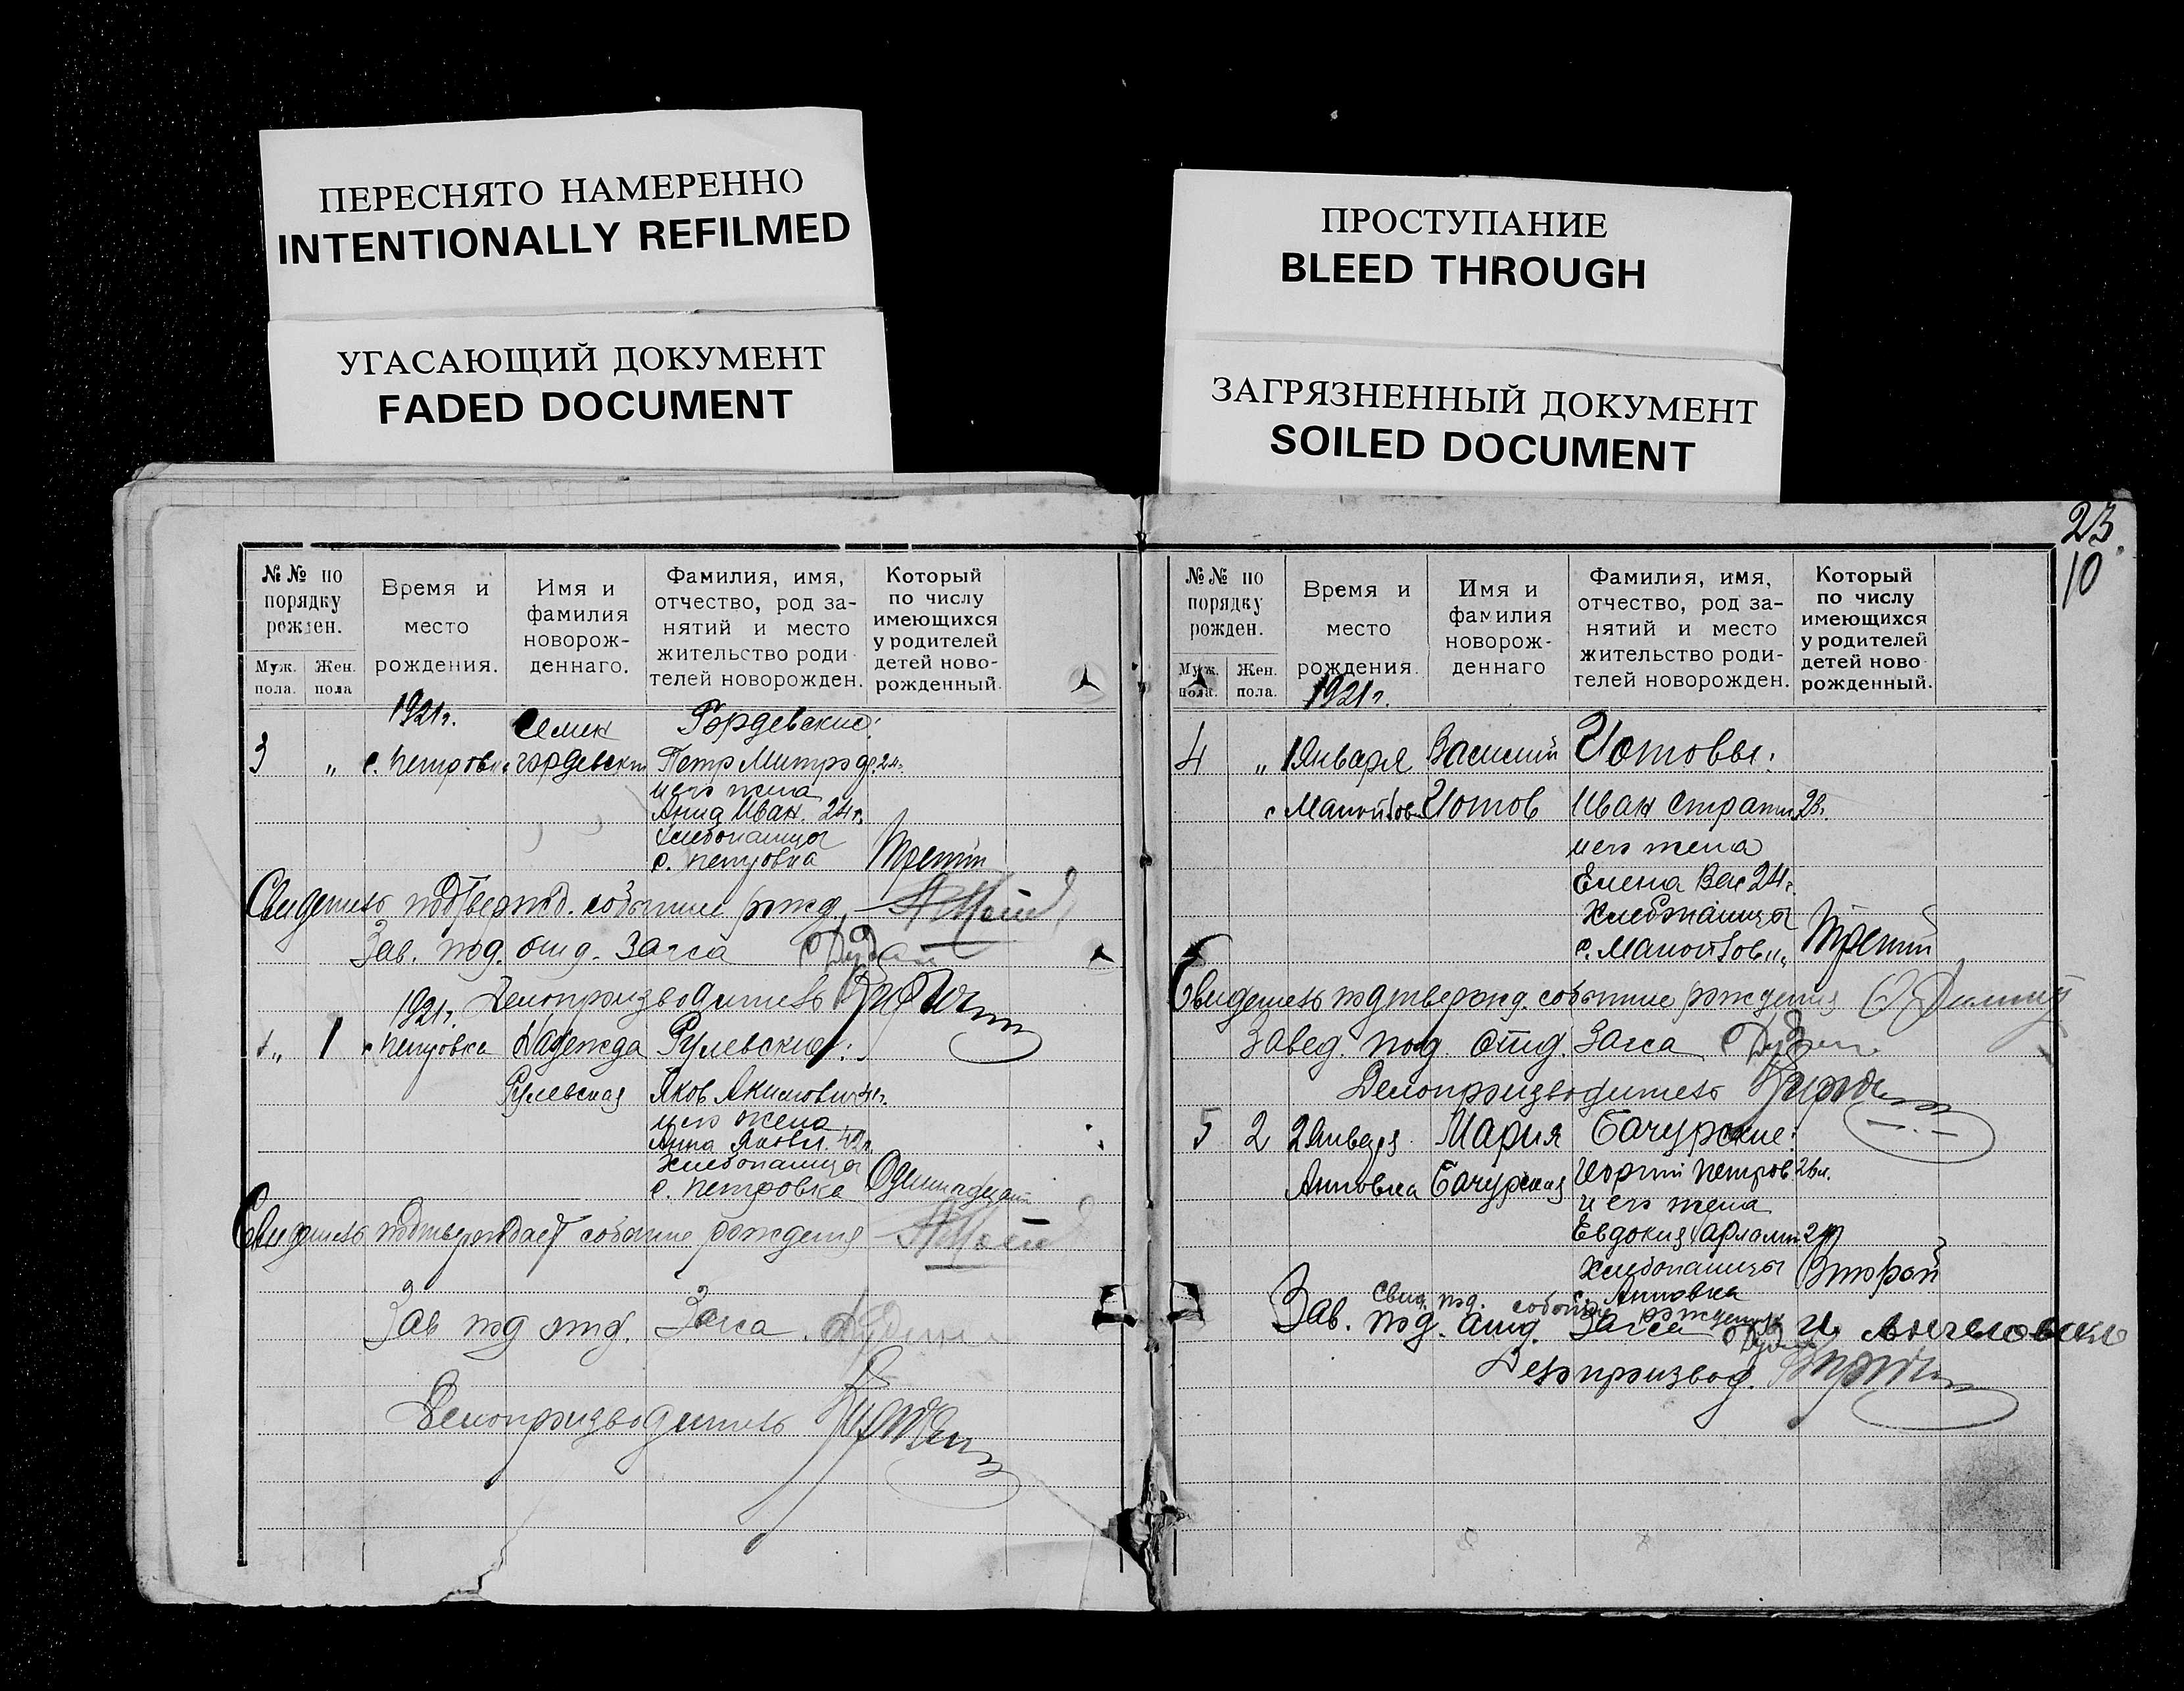 ПЕРЕСНЯТО НАМЕРЕННО
INTENTIONALLY REFILMED
УГАСАЮЩИЙ ДОКУМЕНТ
FADED DOCUMENT
ПРОСТУПАНИЕ
BLEED THROUGH
ЗАГРЯЗНЕННЫЙ ДОКУМЕНТ
SOILED DOCUMENT
№№ по порядку рожден.
Муж. пола.
Жен. пола
Время и место рождения.
Имя и фамилия новорожденнаго.
Фамилия, имя, отчество, род занятий и место жительство родителей новорожден.
Который по числу имеющихся у родителей детей новорожденный.
1921г.
Семен
Гордевские:
3 " с. Петровка Гордевский Петр Митроф. 24.
и его жена
Анна Иван. 24 г.
Хлебопашцы
с. Петровка Третий
Свидетель подтвержд. событие рожд.
Зав. под. отд. Загса
Делопроизводитель
1921г.
" 1 с Петровка Надежда Рулевские:
Рулевская Яков Акимович 41г.
и его жена
Анна Яковл. 42г.
Хлебопашцы
с. Петровка Одинадцат
Свидетель подтверждает событие рождения
Зав под отд. Загса
Делопроизводитель
23.
10
№№ по порядку рожден.
Муж. пола.
Жен. пола.
Время и место рождения.
Имя и фамилия новорожденнаго
Фамилия, имя, отчество, род занятий и место жительство родителей новорожден.
Который по числу имеющихся у родителей детей новорожденный.
1921г.
4 " 1 Января Василий Иотовы:
Иотов Иван Страт. 28.
и его жена
Елена Вас 24г.
Хлебопашцы
Третий
Свидетель подтвержд. событие рождения
Завед. под. отд. Загса
Делопроизводитель
5 2 2 Января Мария Бачурские:
Анновка Бачурская Иоргий Петров 26л.
и его жена
Евдокия Харламп.
Хлебопашцы Второй
с. Анновка
Свид. под. событие рождения
Зав. под. отд. Загса
Делопроизвод.